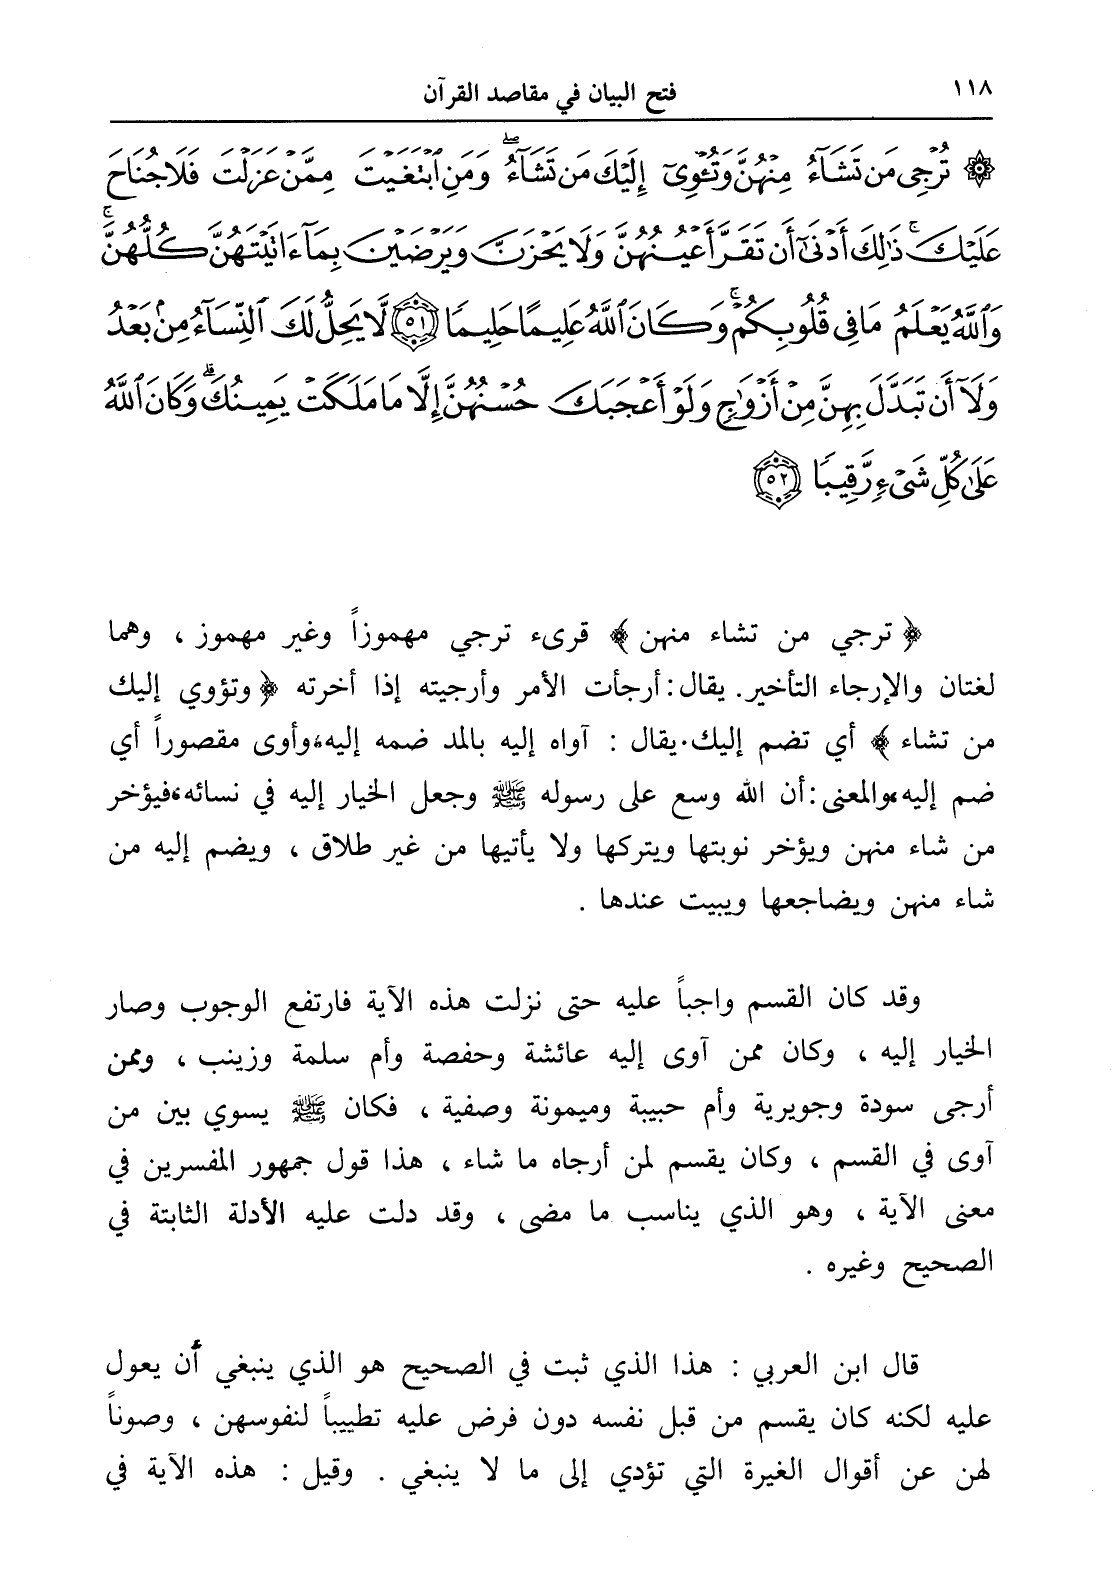 ١١٨ فتح البيان في مقاصد القرآن
۞ تُرْجِى مَن تَشَآءُ مِنْهُنَّ وَتُـْٔوِىٓ إِلَيْكَ مَن تَشَآءُۖ وَمَنِ ٱبْتَغَيْتَ مِمَّنْ عَزَلْتَ فَلَا جُنَاحَ
عَلَيْكَۚ ذَٰلِكَ أَدْنَىٰٓ أَن تَقَرَّ أَعْيُنُهُنَّ وَلَا يَحْزَنَّ وَيَرْضَيْنَ بِمَآ ءَاتَيْتَهُنَّ كُلُّهُنَّۚ
وَٱللَّهُ يَعْلَمُ مَا فِى قُلُوبِكُمْۚ وَكَانَ ٱللَّهُ عَلِيمًا حَلِيمًا ﴿٥١﴾ لَّا يَحِلُّ لَكَ ٱلنِّسَآءُ مِنۢ بَعْدُ
وَلَآ أَن تَبَدَّلَ بِهِنَّ مِنْ أَزْوَٰجٍ وَلَوْ أَعْجَبَكَ حُسْنُهُنَّ إِلَّا مَا مَلَكَتْ يَمِينُكَۗ وَكَانَ ٱللَّهُ
عَلَىٰ كُلِّ شَىْءٍ رَّقِيبًا ﴿٥٢﴾
﴿ ترجي من تشاء منهن ﴾ قرىء ترجي مهموزاً وغير مهموز ، وهما
لغتان والإرجاء التأخير. يقال: أرجأت الأمر وأرجيته إذا أخرته ﴿ وتؤوي إليك
من تشاء ﴾ أي تضم إليك. يقال : آواه إليه بالمد ضمه إليه، وأوى مقصوراً أي
ضم إليه، والمعنى: أن الله وسع على رسوله ﷺ وجعل الخيار إليه في نسائه، فيؤخر
من شاء منهن ويؤخر نوبتها ويتركها ولا يأتيها من غير طلاق ، ويضم إليه من
شاء منهن ويضاجعها ويبيت عندها .
وقد كان القسم واجباً عليه حتى نزلت هذه الآية فارتفع الوجوب وصار
الخيار إليه ، وكان ممن آوى إليه عائشة وحفصة وأم سلمة وزينب ، وممن
أرجى سودة وجويرية وأم حبيبة وميمونة وصفية ، فكان ﷺ يسوي بين من
آوى في القسم ، وكان يقسم لمن أرجاه ما شاء ، هذا قول جمهور المفسرين في
معنى الآية ، وهو الذي يناسب ما مضى ، وقد دلت عليه الأدلة الثابتة في
الصحيح وغيره .
قال ابن العربي : هذا الذي ثبت في الصحيح هو الذي ينبغي أن يعول
عليه لكنه كان يقسم من قبل نفسه دون فرض عليه تطييباً لنفوسهن ، وصوناً
لهن عن أقوال الغيرة التي تؤدي إلى ما لا ينبغي . وقيل : هذه الآية في